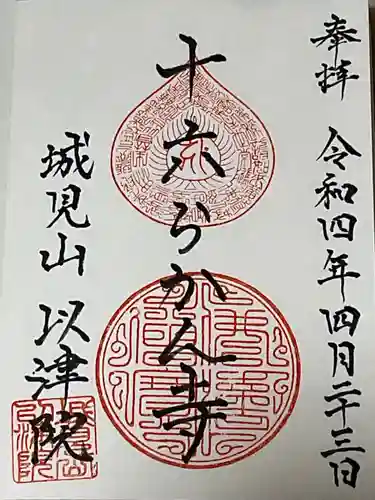 奉拝 令和四年四月二十三日
十六らかん寺
城見山 以津院